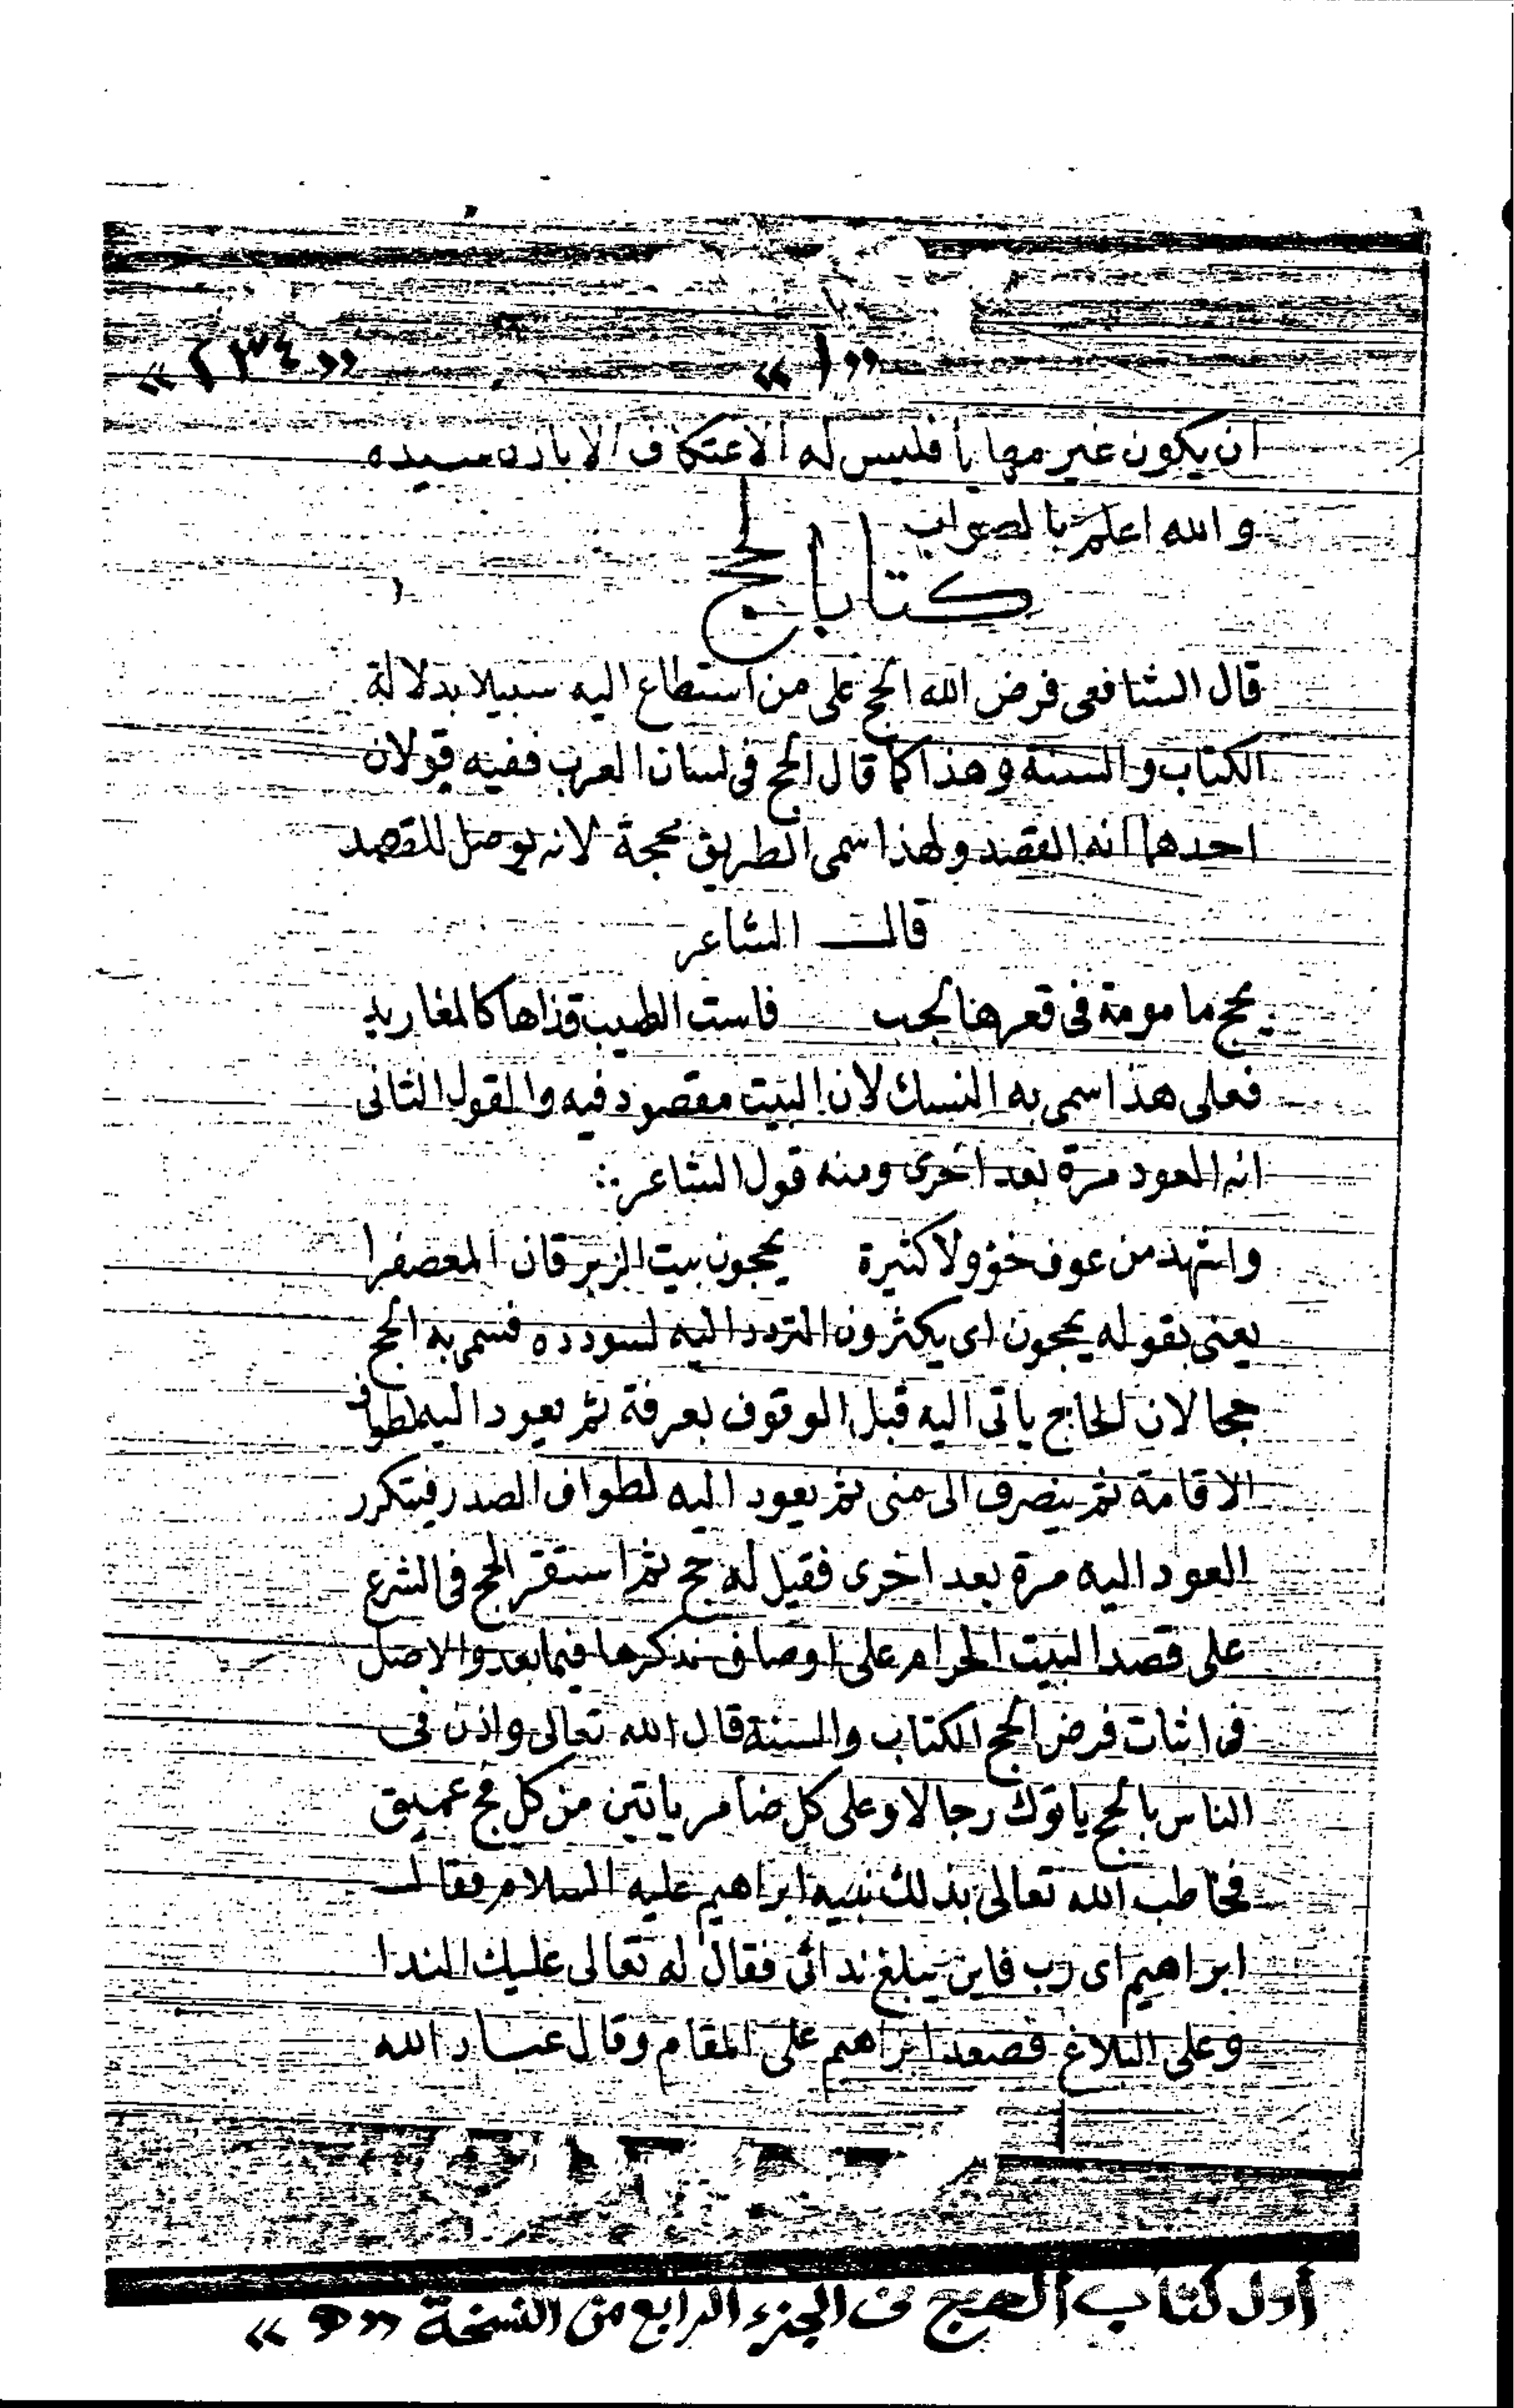 «١» «٢٣٤»
ان يكون غير مهايأ فليس له الاعتكاف الا باذن سيده
والله اعلم بالصواب
كتاب الحج
قال الشافعى فرض الله الحج على من استطاع اليه سبيلا بدلالة
الكتاب والسنة وهذا كما قال الحج فى لسان العرب ففيه قولان
احدهما انه القصد ولهذا سمى الطريق محجة لانه يوصل للقصد
قال الشاعر
يحج مامومة فى قعرها لجب فاست الطبيب قذاها كالمغاريد
فعلى هذا سمى به النسك لان البيت مقصود فيه والقول الثانى
انه العود مرة بعد اخرى ومنه قول الشاعر
واشهد من عوف خؤولا كثيرة يحجون بيت الزبرقان المعصفرا
يعنى بقوله يحجون اى يكثرون التردد اليه لسودده فسمى به الحج
حجا لان الحاج ياتى اليه قبل الوقوف بعرفة ثم يعود اليه لطواف
الاقامة ثم ينصرف الى منى ثم يعود اليه لطواف الصدر فيتكرر
العود اليه مرة بعد اخرى فقيل له حج ثم استقر الحج فى الشرع
على قصد البيت الحرام على اوصاف نذكرها فيما بعد والاصل
فى اثبات فرض الحج الكتاب والسنة قال الله تعالى واذن فى
الناس بالحج ياتوك رجالا وعلى كل ضامر ياتين من كل فج عميق
فخاطب الله تعالى بذلك نبيه ابراهيم عليه السلام فقال
ابراهيم اى رب فاين يبلغ ندائى فقال له تعالى عليك الندا
وعلى البلاغ فصعد ابراهيم على المقام وقال عباد الله
أول كتاب الحج من الجزء الرابع من النسخة «هـ»